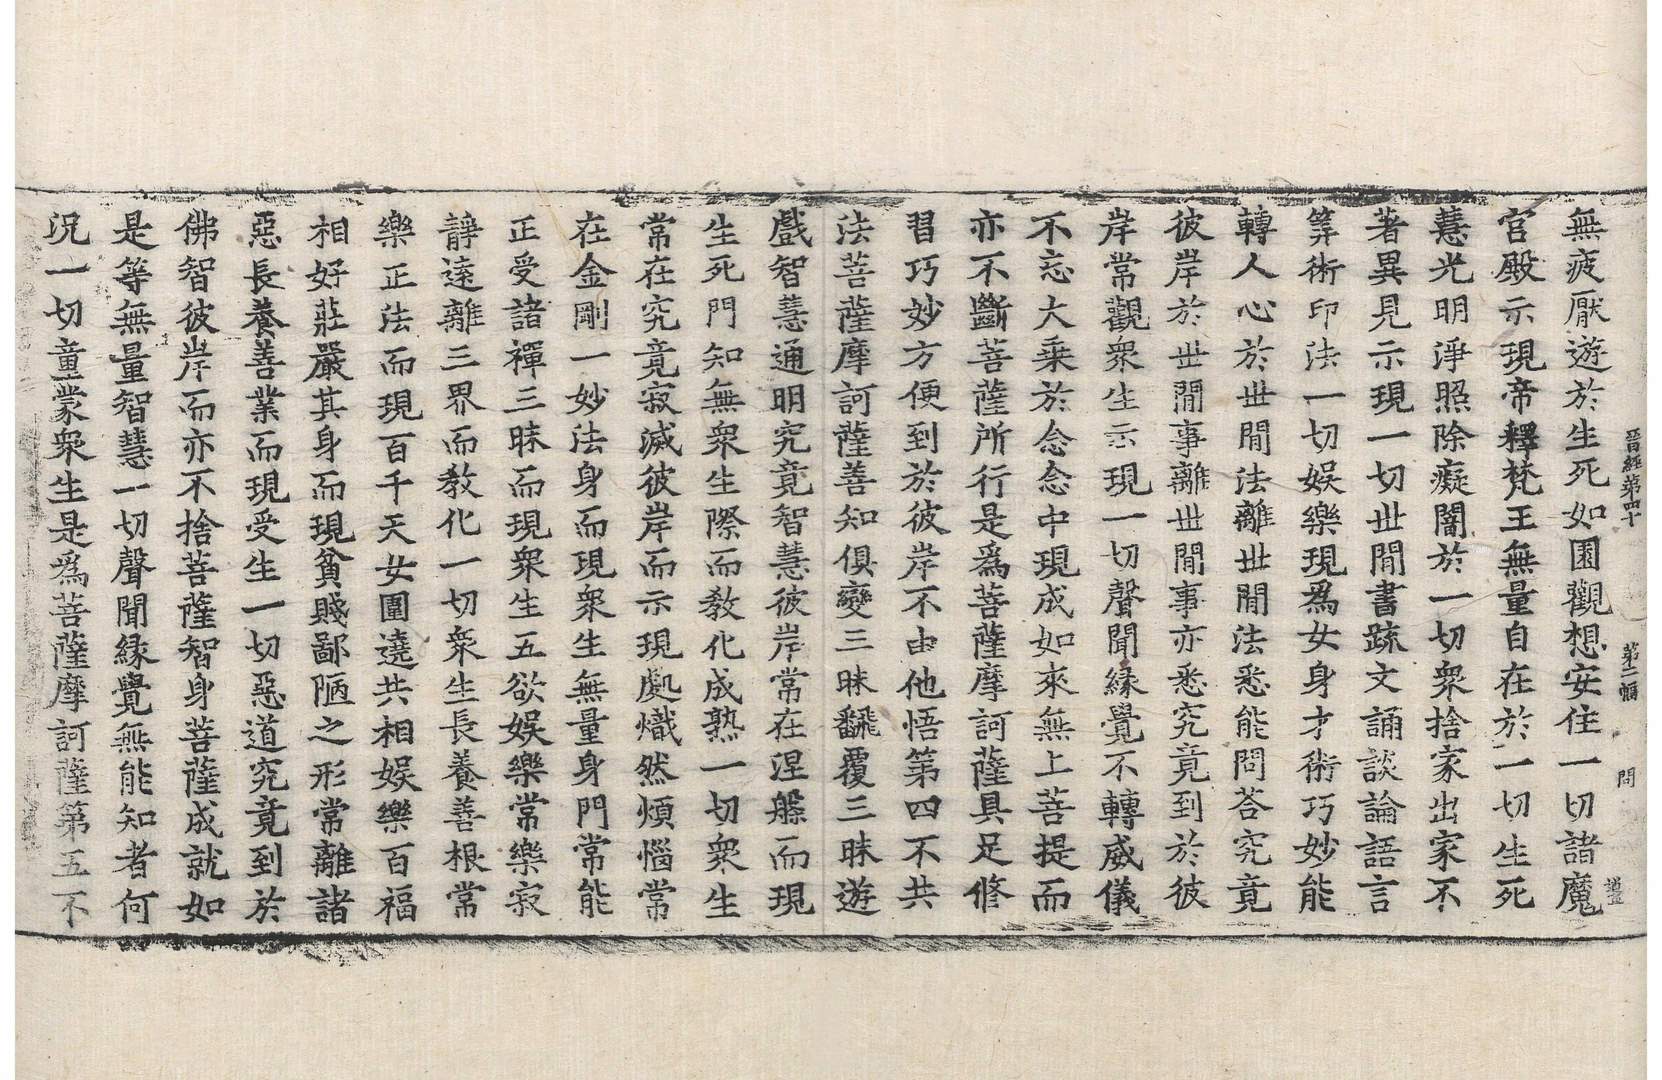 晉經第四十　第二幅　問
無疲厭遊於生死如園觀想安住一切諸魔
宮殿示現帝釋梵王無量自在於一切生死
慧光明淨照除癡闇於一切衆捨家出家不
著異見示現一切世間書䟽文誦談論語言
筭術印法一切娛樂現爲女身才術巧妙能
轉人心於世間法離世間法悉能問荅究竟
彼岸於世間事離世間事亦悉究竟到於彼
岸常觀衆生示現一切聲聞緣覺不轉威儀
不忘大乘於念念中現成如來無上菩提而
亦不斷菩薩所行是爲菩薩摩訶薩具足修
習巧妙方便到於彼岸不由他悟第四不共
法菩薩摩訶薩善知俱變三昧飜覆三昧遊
戲智慧通明究竟智慧彼岸常在涅槃而現
生死門知無衆生際而敎化成熟一切衆生
常在究竟寂滅彼岸而示現處熾然煩惱常
在金剛一妙法身而現衆生無量身門常能
正受諸禪三昧而現衆生五欲娛樂常樂寂
靜遠離三界而敎化一切衆生長養善根常
樂正法而現百千天女圍遶共相娛樂百福
相好莊嚴其身而現貧賤鄙陋之形常離諸
惡長養善業而現受生一切惡道究竟到於
佛智彼岸而亦不捨菩薩智身菩薩成就如
是等無量智慧一切聲聞緣覺無能知者何
況一切童蒙衆生是爲菩薩摩訶薩第五不